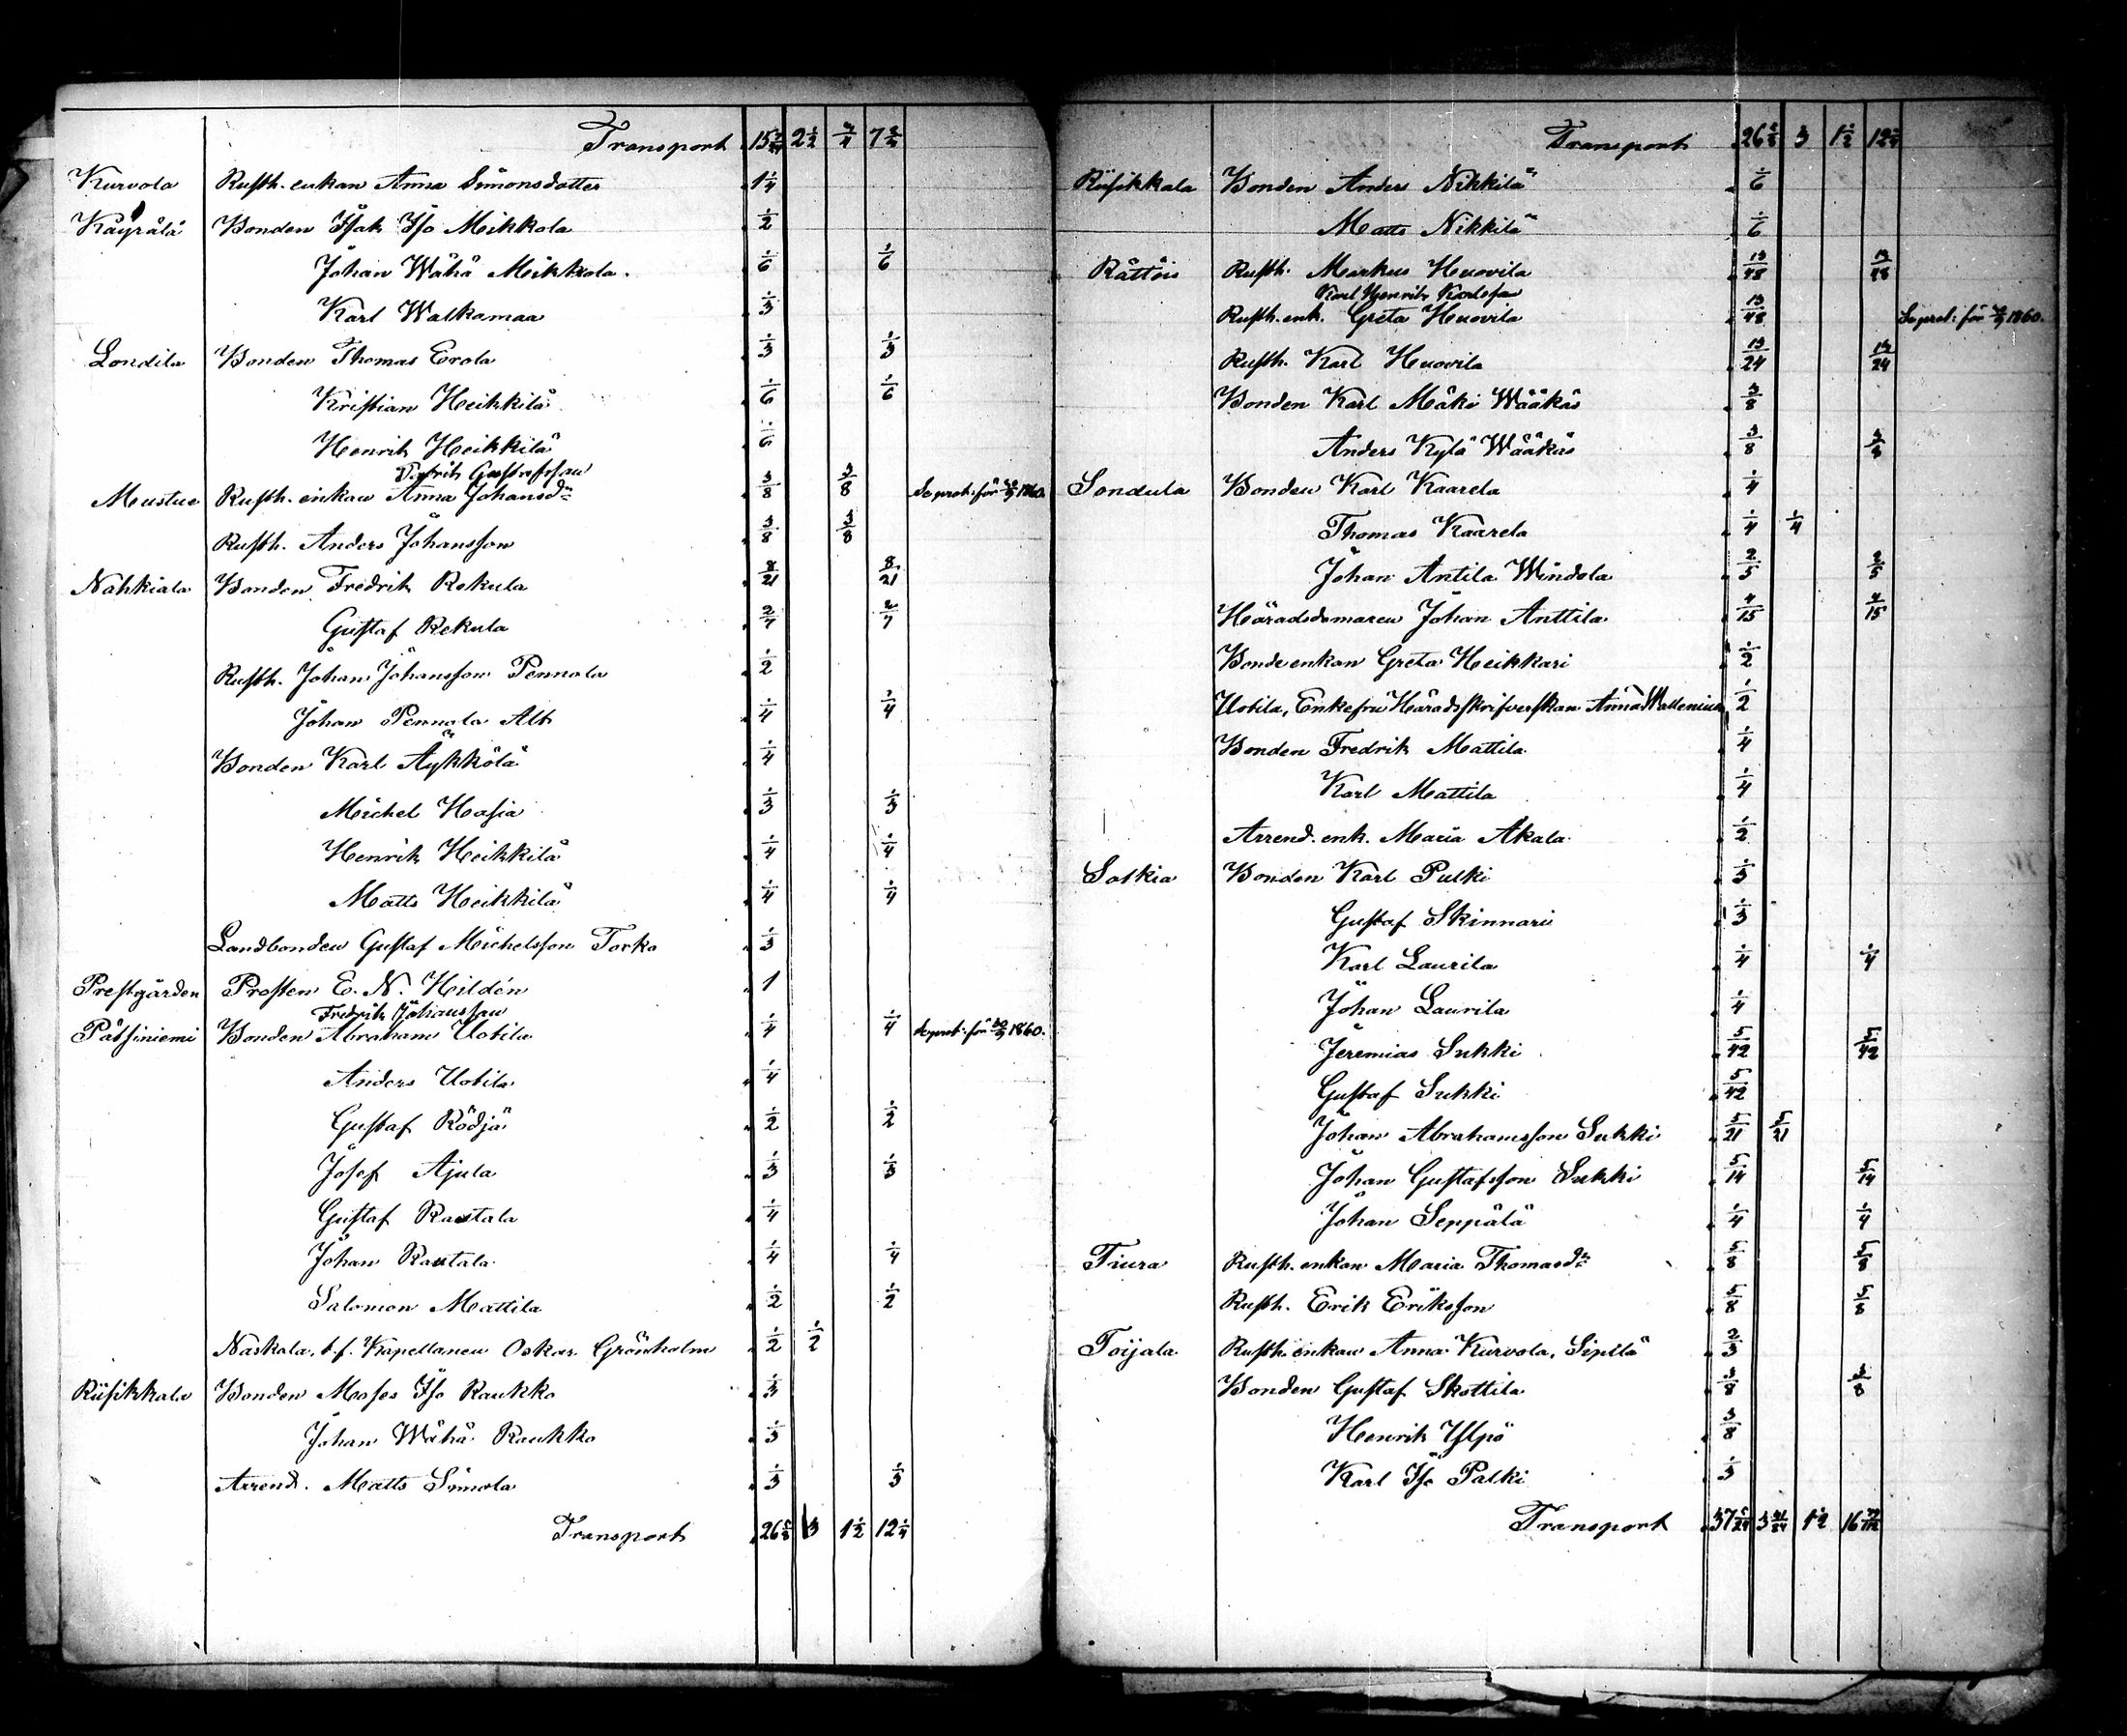 Transport 15 2 1/2 3/4 7
Kurvola Rusth. enkan Anna Simonsdotter 1 1/4
Käyrälä Bonden Isak Iso Meikkola 1/2
Johan Wähä Meikkola. 1/6 1/6
Karl Walkamaa 1/3
Londila Bonden Thomas Erola 1/3 1/3
Kristian Heikkilä 1/6 1/6
Henrik Heikkilä 1/6
Gustafsson
Mustue Rusth. enkan Anna Johansdr 3/8 3/8 Se prot. för 1860.
Rusth. Anders Johansson 3/8 3/8
Nahkiala Bonden Fredrik Rekula 8/21 8/21
Gustaf Rekula 2/7 2/7
Rusth. Johan Johansson Pennola 1/2
Johan Pennola Alt 1/4 1/4
Bonden Karl Äykkölä 1/4
Michel Hasia 1/3 1/3
Henrik Heikkilä 1/4 1/4
Matts Heikkilä 1/4 1/4
Landbonden Gustaf Michelsson Torko 1/3
Prestgården Prosten E. N. Hildén 1
Fredrik Johansson
Pätsiniemi Bonden Abraham Uotila 1/4 1/4 Se prot. för 1860.
Anders Uotila 1/4
Gustaf Rödjä 1/2 1/2
Josef Ajula 1/3 1/3
Gustaf Rautala 1/4
Johan Rautala 1/4 1/4
Salomon Mattila 1/2 1/2
Naskala, t.f. Kapellanen Oskar Grönholm 1/2 1/2
Riisikkala Bonden Moses Iso Raukko 1/3
Johan Wähä Raukko 1/3
Arrend. Matts Simola 1/3 1/3
Transport 26 5/8 3 1 1/2 12 1/4
Transport 26 5/8 3 1 1/2 12 1/4
Riisikkala Bonden Anders Nikkilä 1/6
Matts Nikkilä 1/6
Rättöis Rusth. Markus Huovila 13/48 13/48
Karl Henrik Karlsson
Rusth. enk. Greta Huovila 13/48 Se prot. för 1860.
Rusth. Karl Huovila 13/24 13/24
Bonden Karl Mäki Wääkäs 3/8
Anders Kylä Wääkäs 3/8
Sondula Bonden Karl Kaarela 1/4
Thomas Kaarela 1/4 1/4
Johan Antila Windola 2/5 2/5
Häradsdomaren Johan Anttila 4/15 4/15
Bondeenkan Greta Heikkari 1/2
Uotila, Enkefru Häradsskrifverskan Anna Wallenius 1/2
Bonden Fredrik Mattila 1/4
Karl Mattila 1/4
Arrend. enk. Maria Akala 1/2
Sotkia Bonden Karl Pulki 1/3
Gustaf Skinnari 1/3
Karl Laurila 1/4 1/4
Johan Laurila 1/4
Jeremias Sukki 5/42 5/42
Gustaf Sukki 5/42
Johan Abrahamsson Sukki 5/21 5/21
Johan Gustafsson Sukki 5/14 5/14
Johan Seppälä 1/4 1/4
Tiura Rusth. enkan Maria Thomasdr 5/8 5/8
Rusth. Erik Eriksson 5/8 5/8
Toijala Rusth. enkan Anna Kurvola, Sipilä 2/3
Bonden Gustaf Skottila 3/8 3/8
Henrik Yspö 3/8
Karl Iso Palki 1/3
Transport 37 3 1 1/2 16